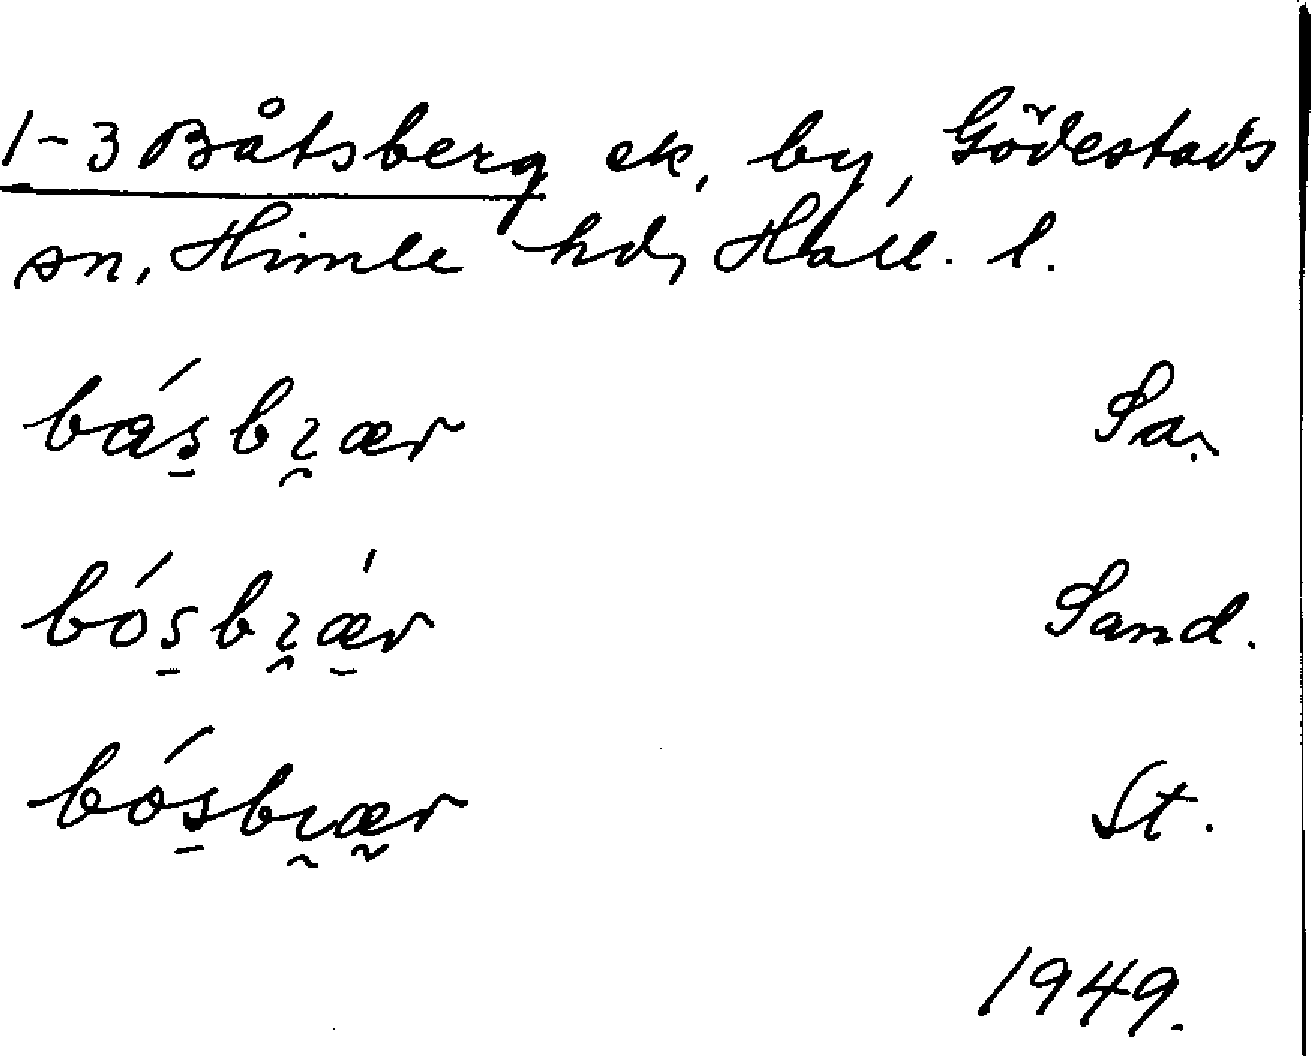 1-3 Båtsberg ek, by, Gödestads
sn, Himle hd, Hall. l.
Sa.
Sand.
St.
1949.